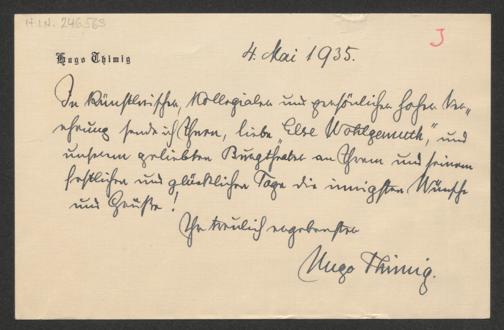 H.I.N. 246563
J
Hugo Thimig
4. Mai 1935.
In künstlerischer, kollegialer und persönlicher hoher Ver„
ehrung sende ich Ihnen, liebe „Else Wohlgemuth“, und
unserm geliebten Burgtheater an Ihrem und seinem
festlichen und glücklichen Tage die innigsten Wünsche
und Grüße!
Ihr treulich ergebenster
Hugo Thimig.